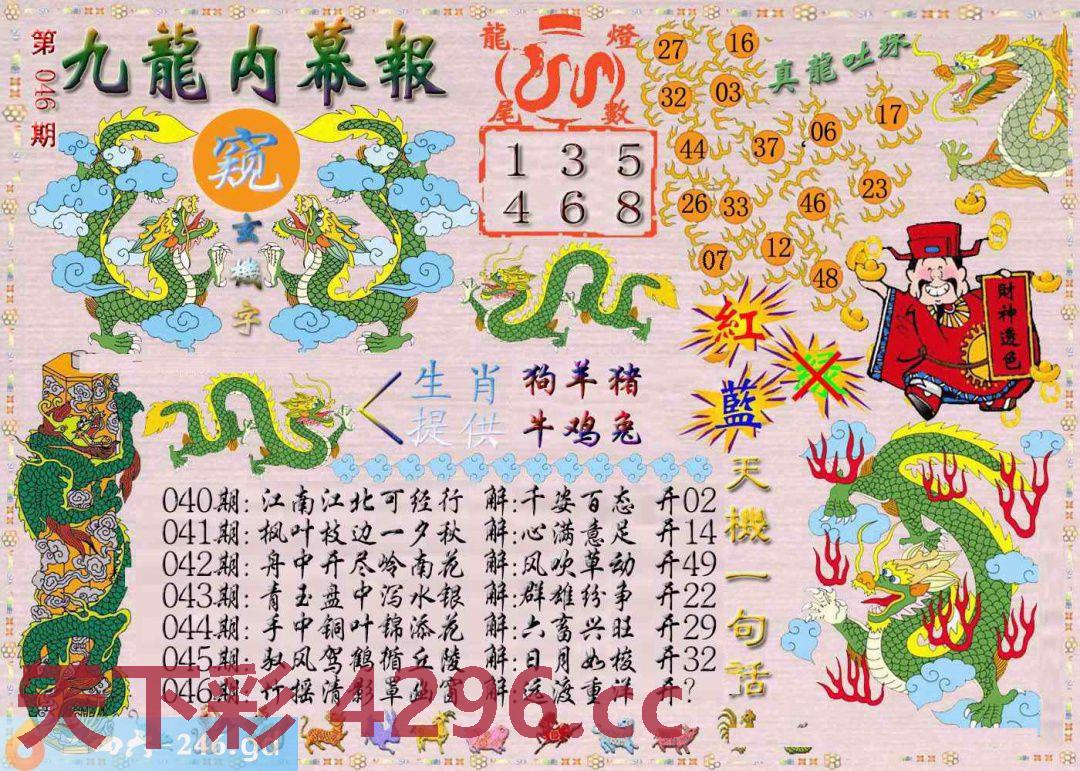 第046期
九龍内幕報
窺
玄機字
龍燈
尾數
1 3 5
4 6 8
27 16
32 03
44 37 06 17
26 33 46 23
07 12 48
真龍吐珠
紅
绿
藍
財神透色
生肖提供
狗羊猪
牛鸡兔
天機一句話
040期:江南江北可经行 解:千姿百态 开02
041期:枫叶枝边一夕秋 解:心满意足 开14
042期:舟中开尽岭南花 解:风吹草动 开49
043期:青玉盘中泻水银 解:群雄纷争 开22
044期:手中铜叶锦添花 解:六畜兴旺 开29
045期:驭风驾鹤循丘陵 解:日月如梭 开32
046期:竹摇清影罩幽窗 解:远渡重洋 开?
天下彩 4296.cc
=246.gd